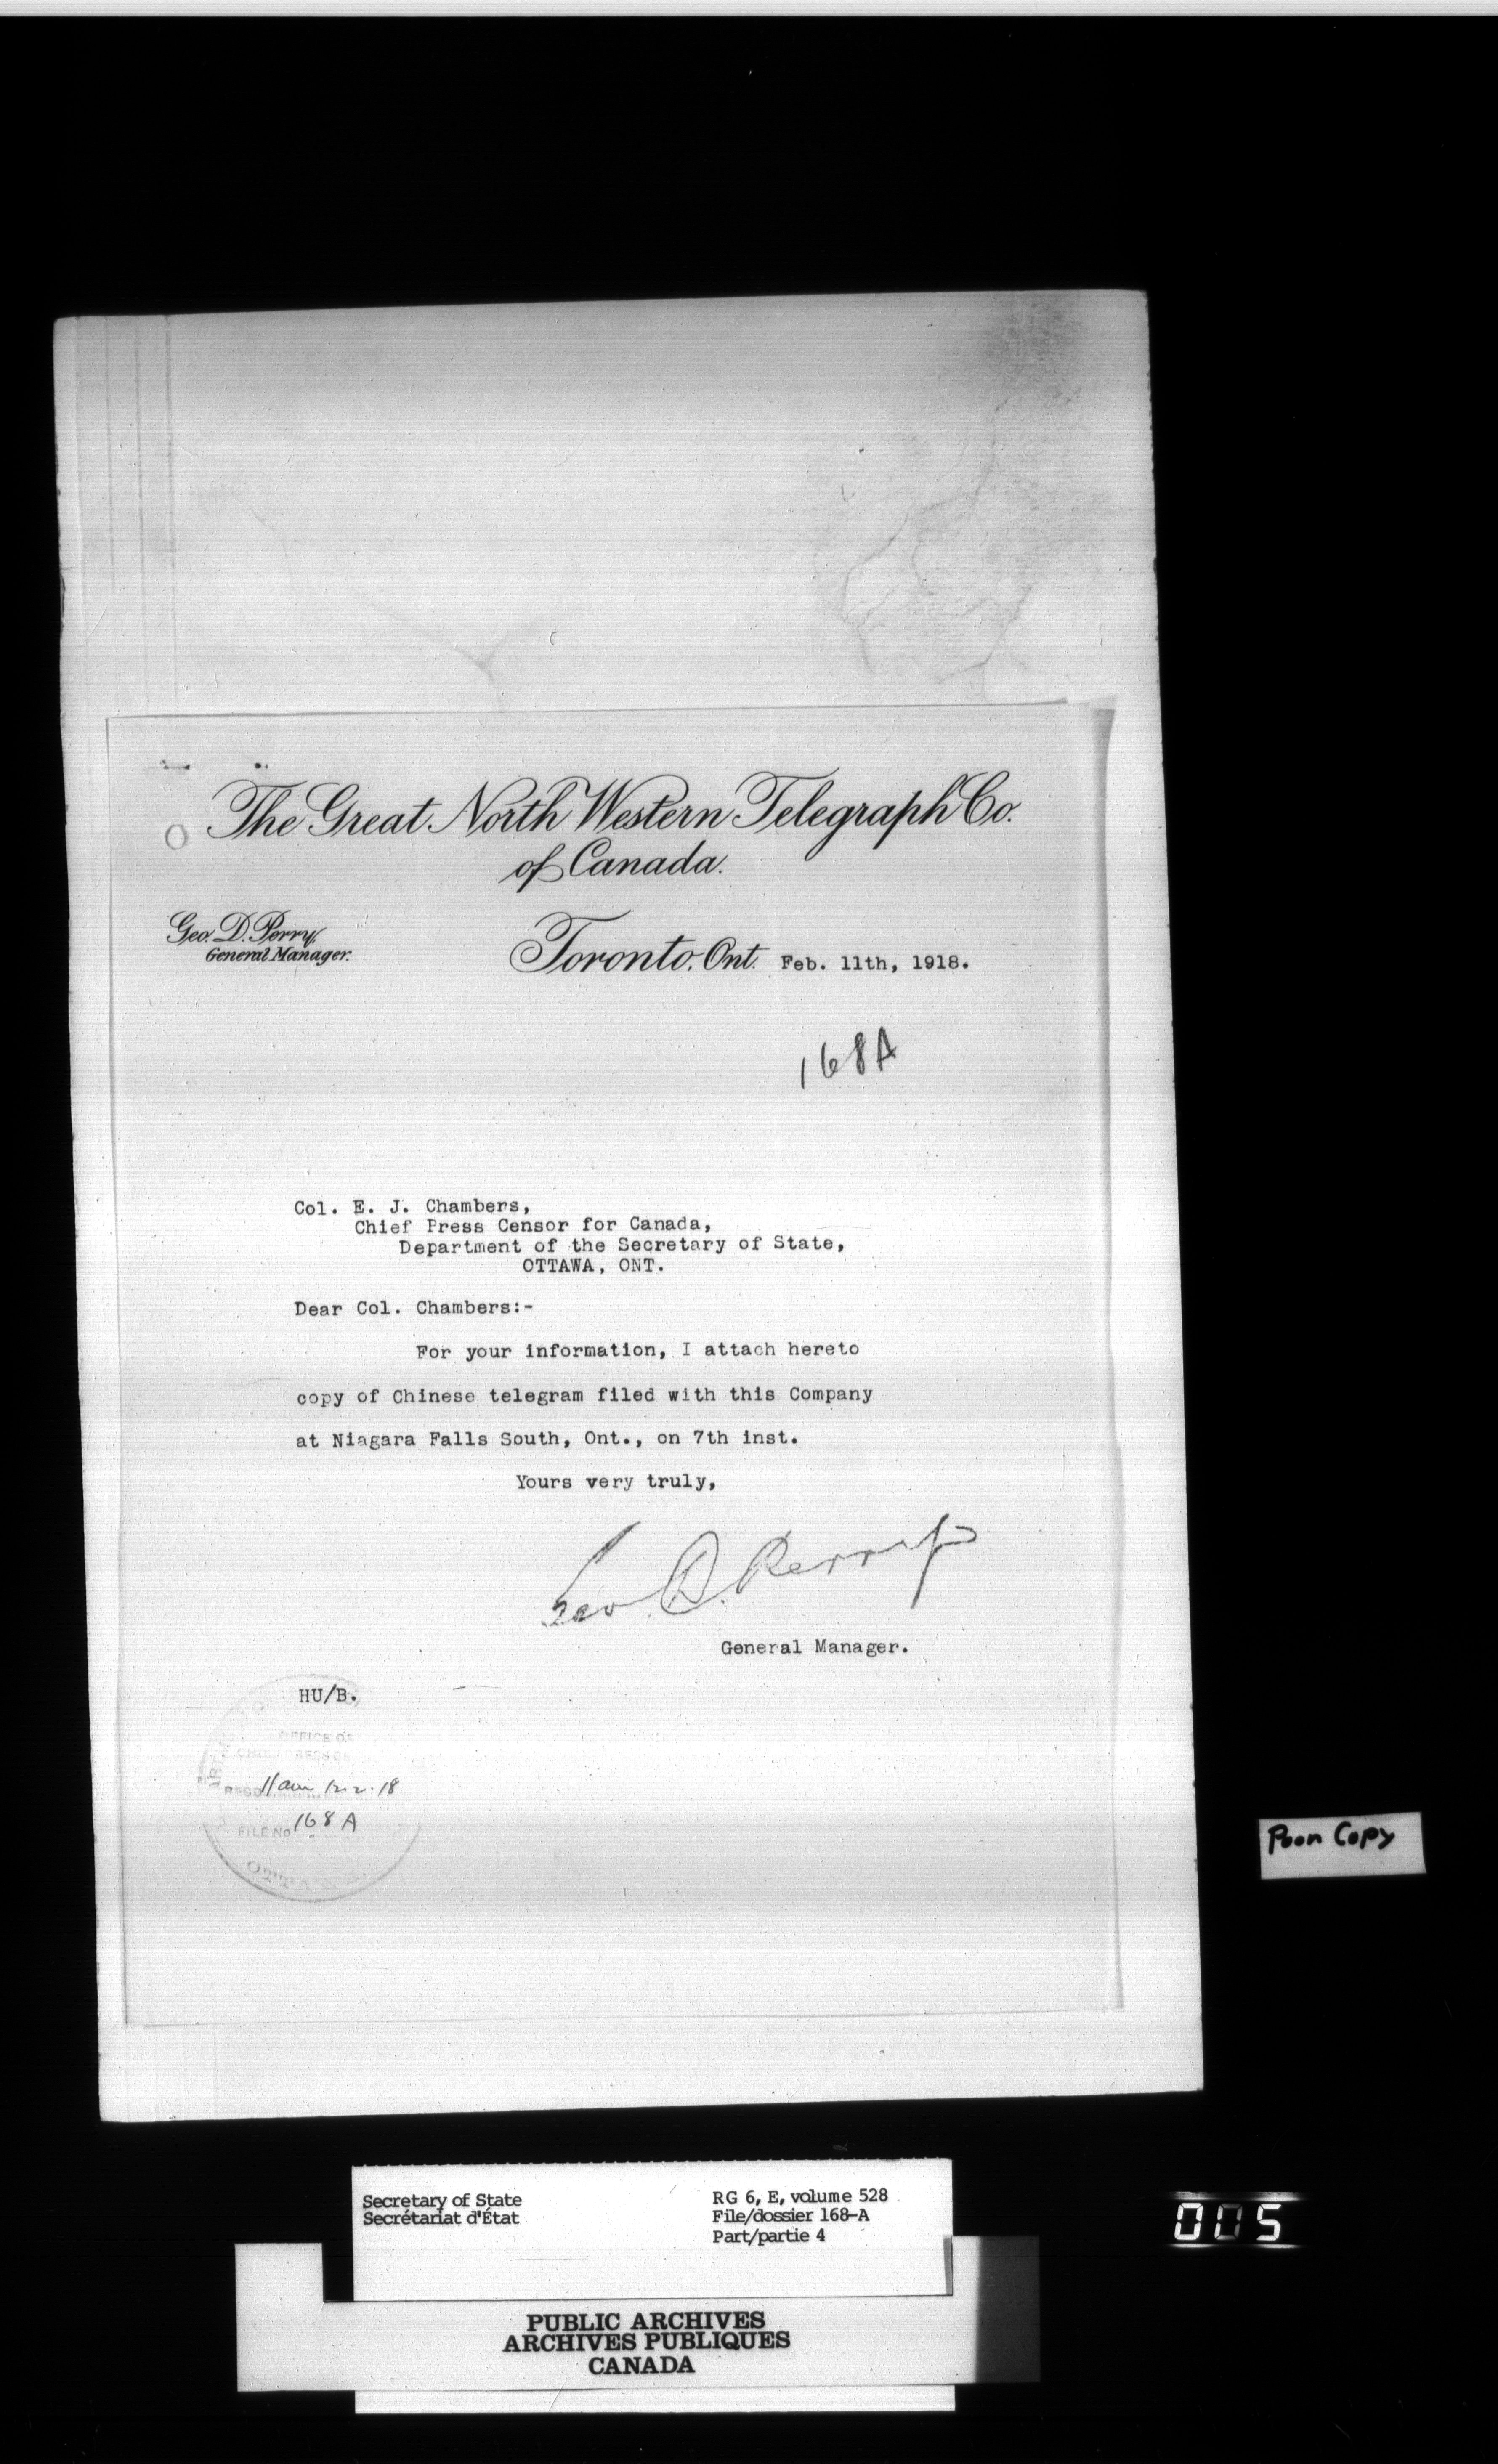 The Great North Western Telegraph Co.
of Canada.
Geo. D. Perry,
General Manager.
Toronto, Ont. Feb. 11th, 1918.
168A
Col. E. J. Chambers,
Chief Press Censor for Canada,
Department of the Secretary of State,
OTTAWA, ONT.
Dear Col. Chambers:-
For your information, I attach hereto
copy of Chinese telegram filed with this Company
at Niagara Falls South, Ont., on 7th inst.
Yours very truly,
Geo. D. Perry
General Manager.
HU/B.
OFFICE OF
CHIEF PRESS
11am 12.2.18
FILE No 168 A
OTTAWA
Poor Copy
Secretary of State
Secrétariat d'État
RG 6, E, volume 528
File/dossier 168-A
Part/partie 4
005
PUBLIC ARCHIVES
ARCHIVES PUBLIQUES
CANADA